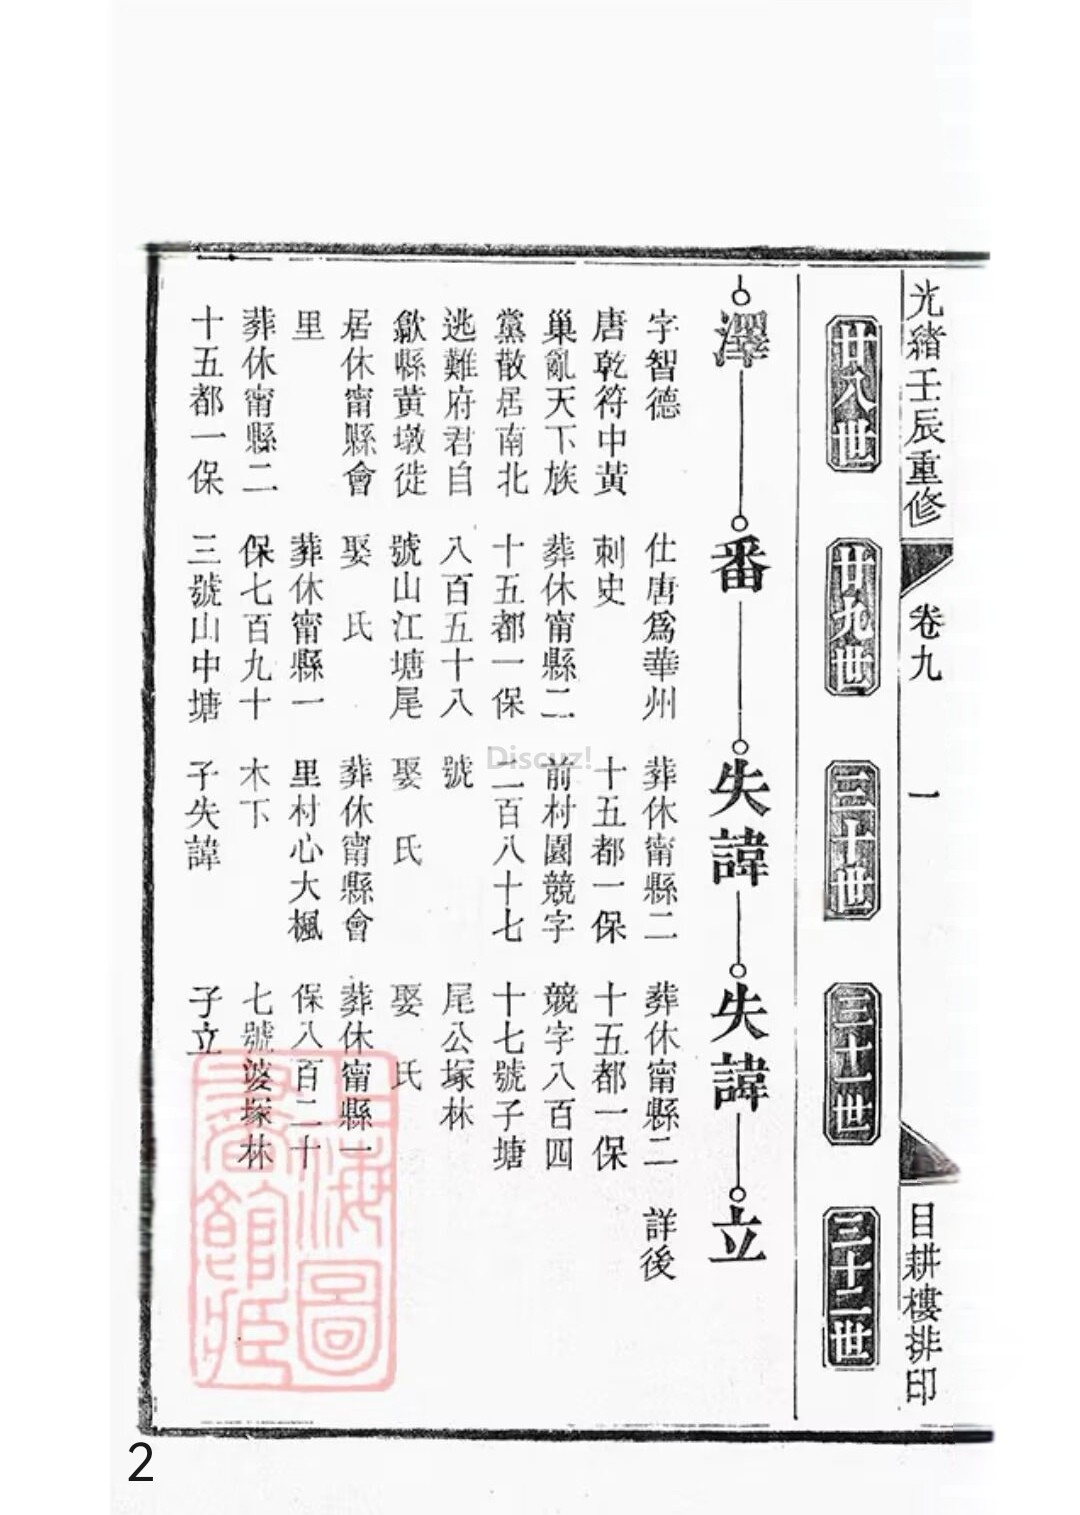 光緒壬辰重修
卷九
一
目耕樓排印
廿八世
廿九世
三十世
三十一世
三十二世
澤
字智德
唐乾符中黃
巢亂天下族
黨散居南北
逃難府君自
歙縣黃墩徙
居休甯縣會
里
葬休甯縣二
十五都一保
番
仕唐爲華州
刺史
葬休甯縣二
十五都一保
八百五十八
號山江塘尾
娶 氏
葬休甯縣一
保七百九十
三號山中塘
失諱
葬休甯縣二
十五都一保
前村園競字
二百八十七
號
娶 氏
葬休甯縣會
里村心大楓
木下
子失諱
失諱
葬休甯縣二
十五都一保
競字八百四
十七號子塘
尾公塚林
娶 氏
葬休甯縣一
保八百二十
七號婆塚林
子立
立
詳後
上海圖
書館藏
Discuz!
2